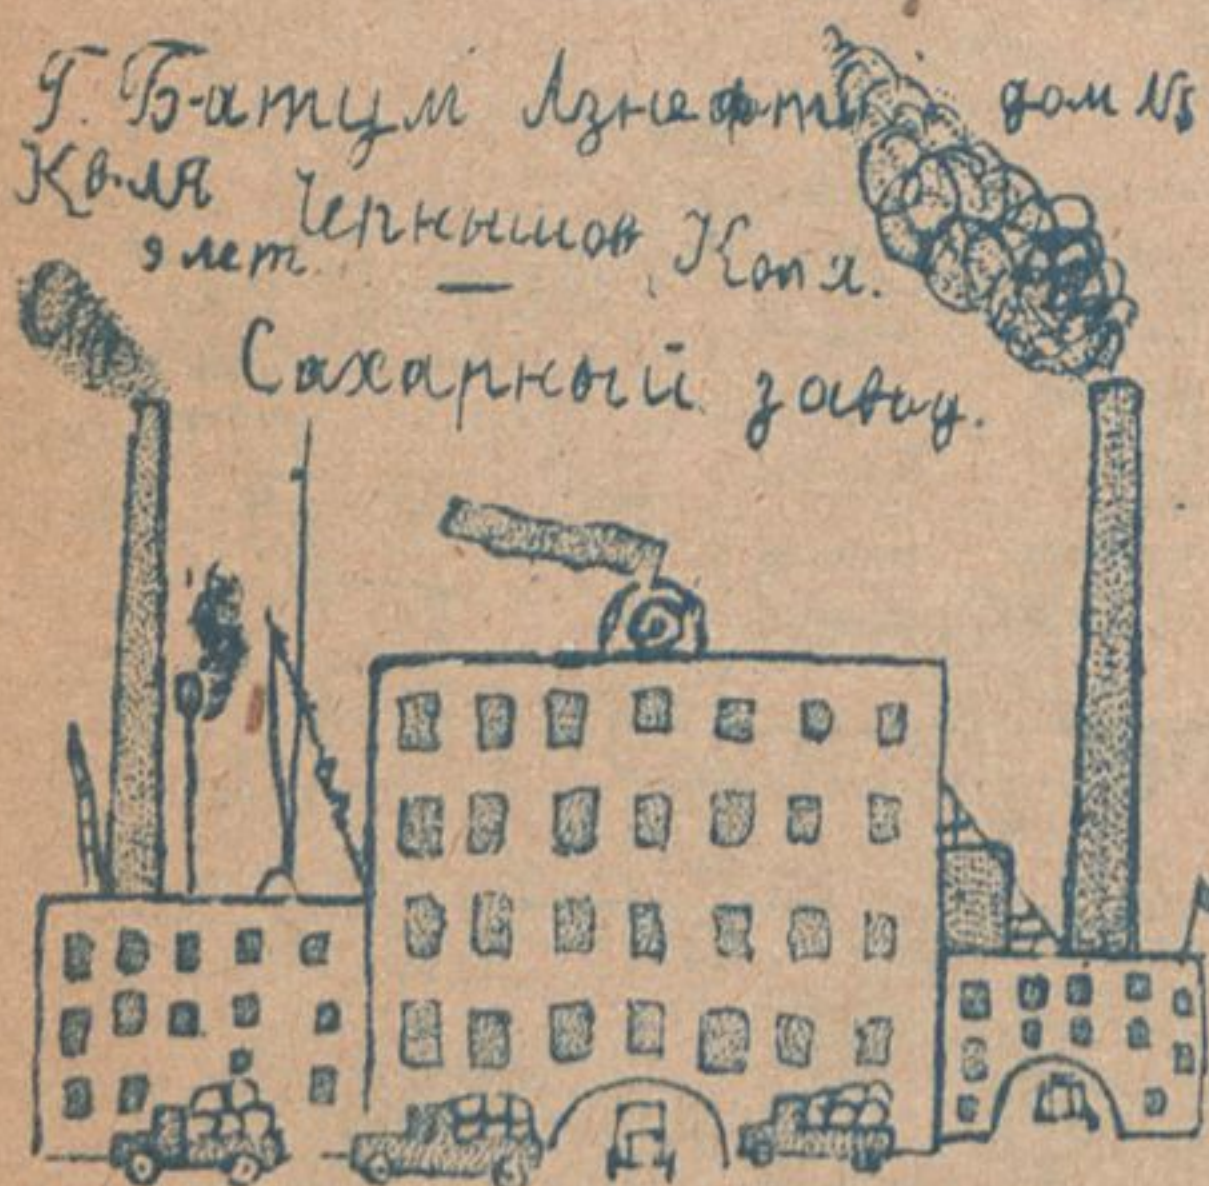 Г. Батум Азнефти дом №5
Коля Чернышов Коля.
9 лет.
Сахарный завод.